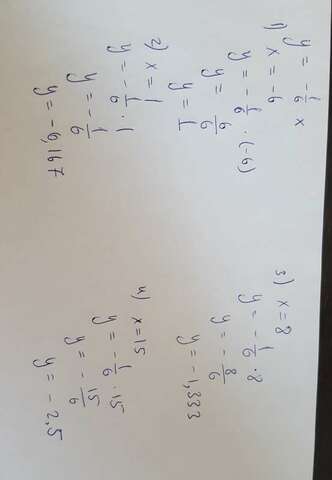 y = -1/6 x
1) x = -6
y = -1/6 · (-6)
y = 6/6
y = 1
2) x = 1
y = -1/6 · 1
y = -1/6
y = -0,167
3) x = 8
y = -1/6 · 8
y = -8/6
y = -1,333
4) x = 15
y = -1/6 · 15
y = -15/6
y = -2,5